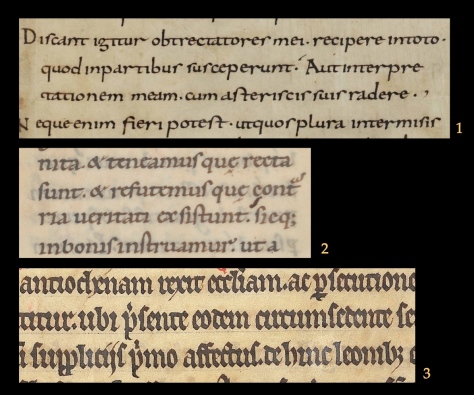 Discant igitur obtrectatores mei. recipere intoto.
quod inpartibus susceperunt. Aut interpre
tationem meam. cum asteriscis suis radere.,
Neque enim fieri potest. utquos plura intermisis
1
nita. & teneamus quę recta
sunt. & refutemus quę cont
ria ueritati exsistunt. sieq;
inbonis instruamur. ut a
2
antiochenam rexit eccliam. ac psecutione
titur. ubi psente eodem circumsedente se
i suppliciis pmo affectus. dehinc leonibz
3